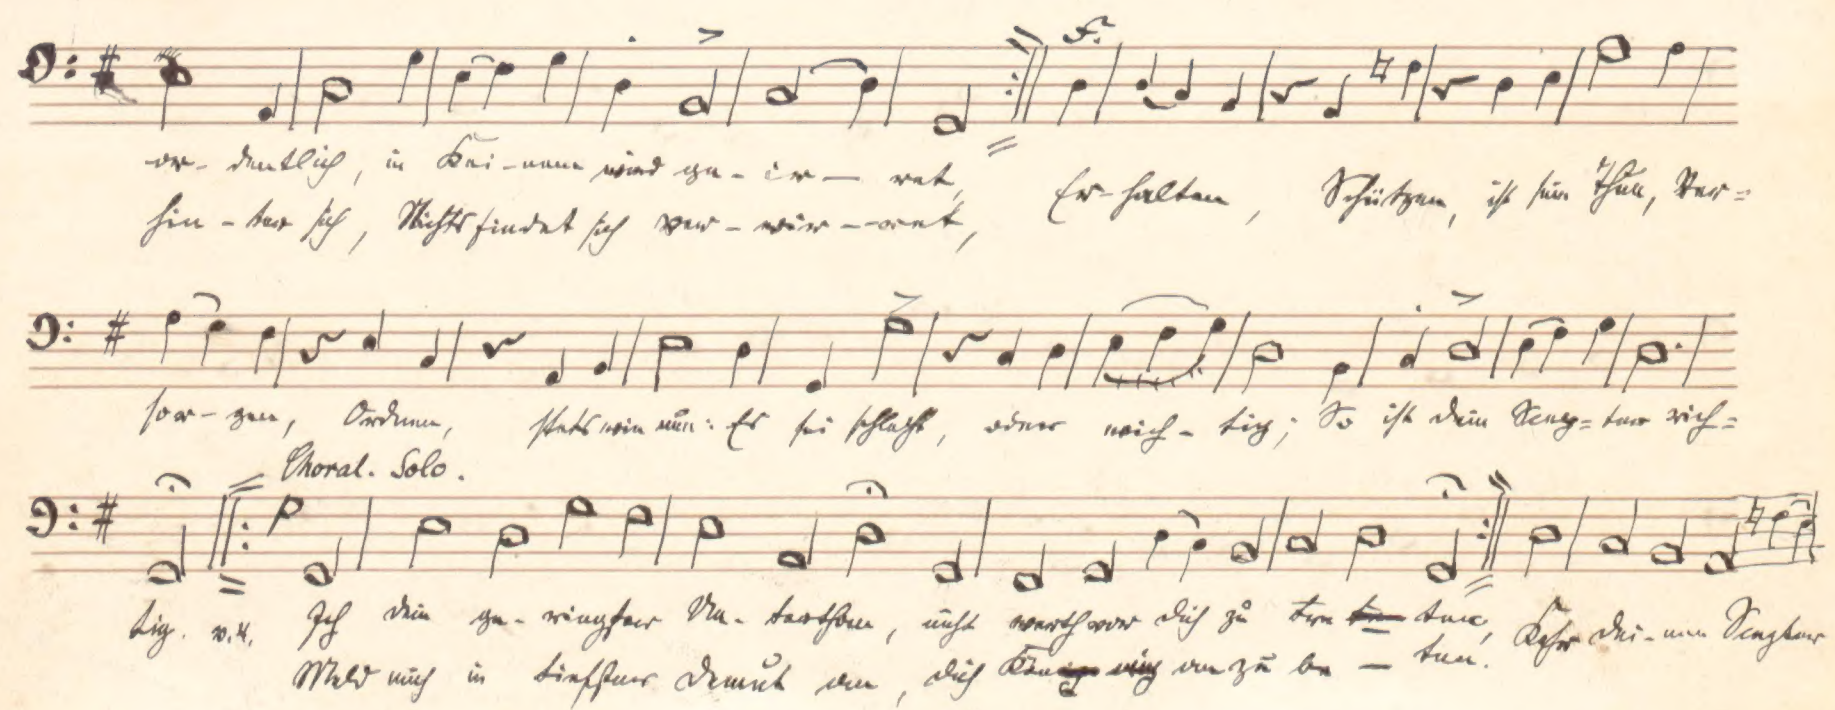 or- dentlich, in Kei-nem wird ge-ir- ret,
hin-ter sich, Nichts findet sich ver-wir-ret,
F.
Er-halten, Schützen, ist sein Thun, Ver-=
sor-gen, Ordnen, stets wie nun: Es sei schlecht, oder wich-tig; So ist dein Scep=ter rich-=
Choral. Solo.
tig. v.4. Ich dein ge-ringster Un-terthan, nicht werth vor dich zu tre ten, Kehr dei-nen Scepter
Meld mich in tiefster Demut an, dich König anzu be-ten.